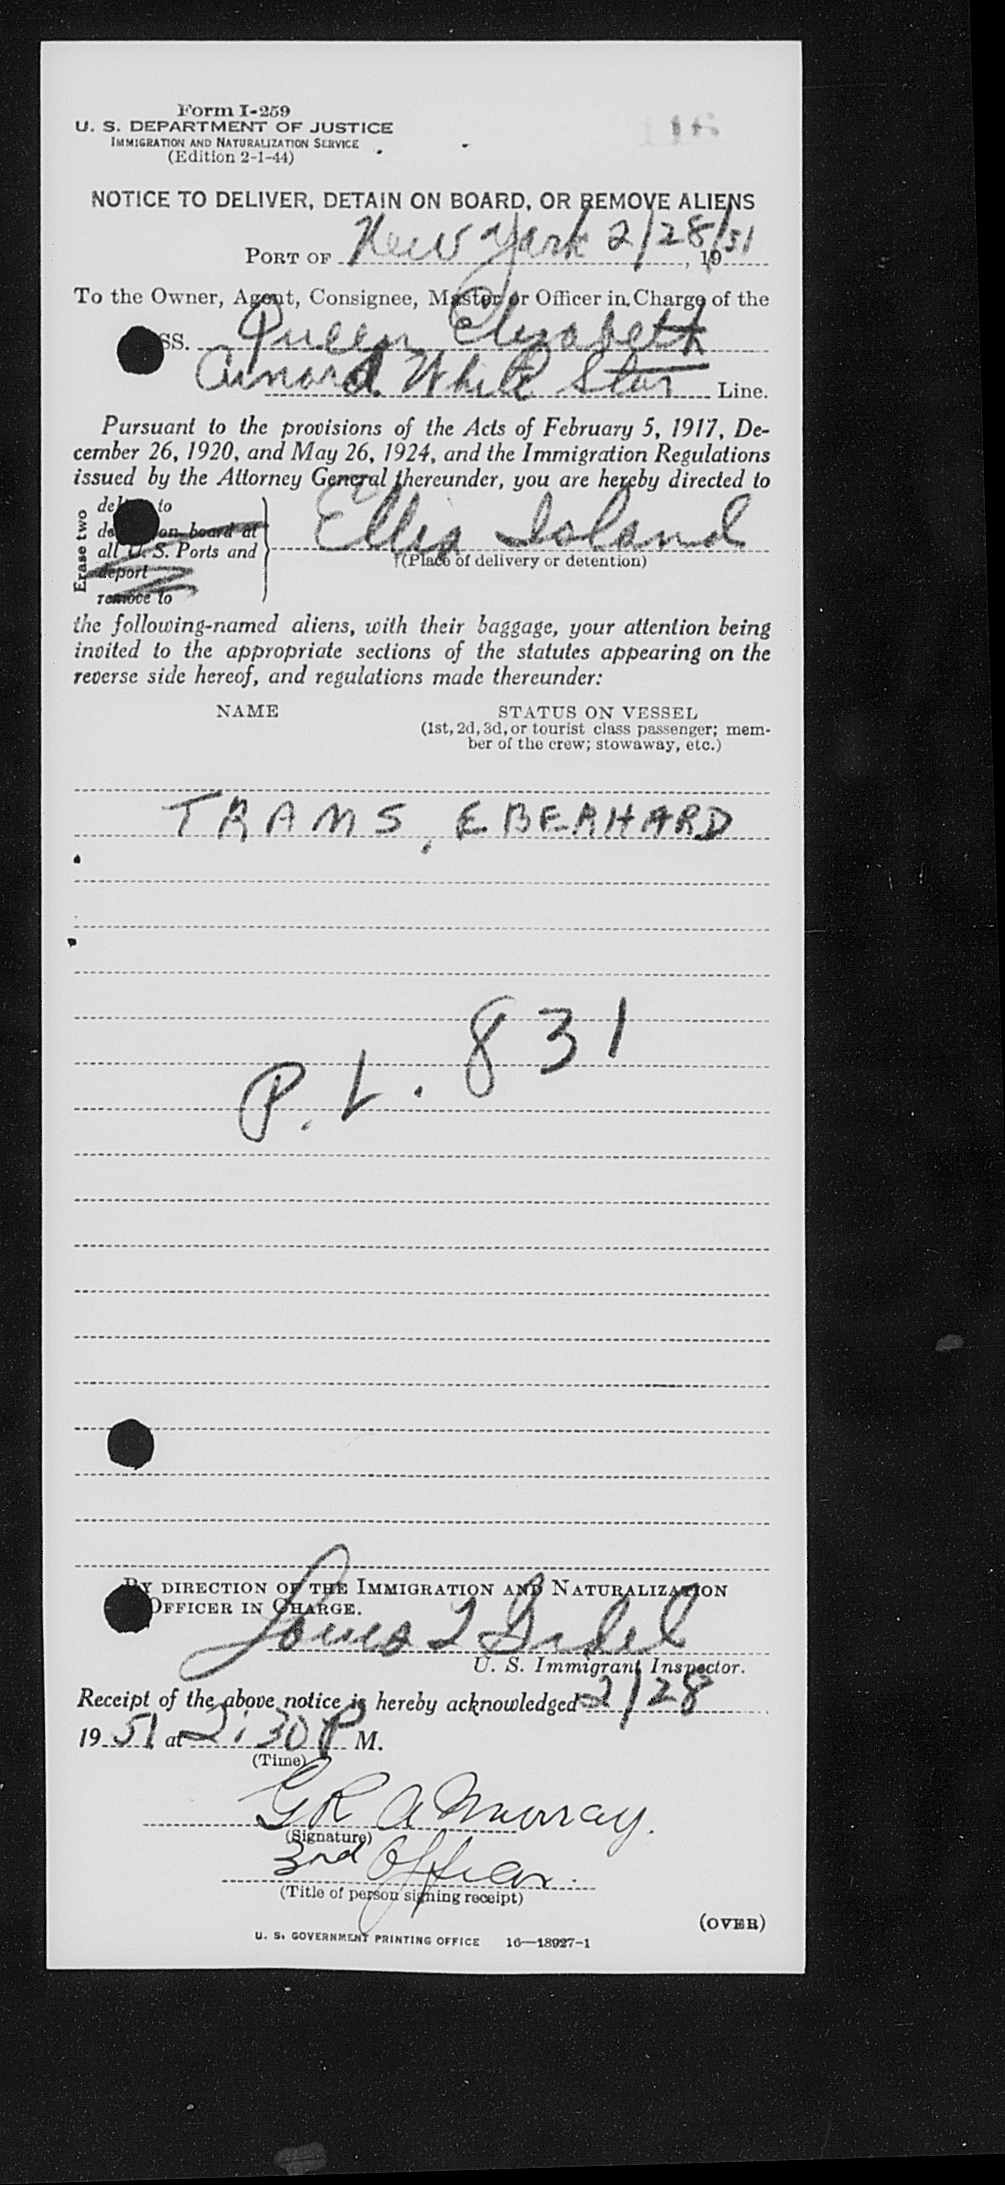 Form I-259
U. S. DEPARTMENT OF JUSTICE
IMMIGRATION AND NATURALIZATION SERVICE
(Edition 2-1-44)
116
NOTICE TO DELIVER, DETAIN ON BOARD, OR REMOVE ALIENS
PORT OF New York 2/28/51, 19
To the Owner, Agent, Consignee, Master or Officer in Charge of the
SS. Queen Elizabeth
Cunard White Star Line.
Pursuant to the provisions of the Acts of February 5, 1917, De-
cember 26, 1920, and May 26, 1924, and the Immigration Regulations
issued by the Attorney General thereunder, you are hereby directed to
Erase two
deliver to
detain on board at
all U. S. Ports and
deport
remove to
Ellis Island
(Place of delivery or detention)
the following-named aliens, with their baggage, your attention being
invited to the appropriate sections of the statutes appearing on the
reverse side hereof, and regulations made thereunder:
NAME STATUS ON VESSEL
(1st, 2d, 3d, or tourist class passenger; mem-
ber of the crew; stowaway, etc.)
TRAMS, EBERHARD
P.L. 831
BY DIRECTION OF THE IMMIGRATION AND NATURALIZATION
OFFICER IN CHARGE.
U. S. Immigrant Inspector.
Receipt of the above notice is hereby acknowledged 2/28
19 51 at 2:30 P M.
(Time)
G R A Murray.
(Signature)
3rd Officer.
(Title of person signing receipt)
(OVER)
U. S. GOVERNMENT PRINTING OFFICE 16—18927-1